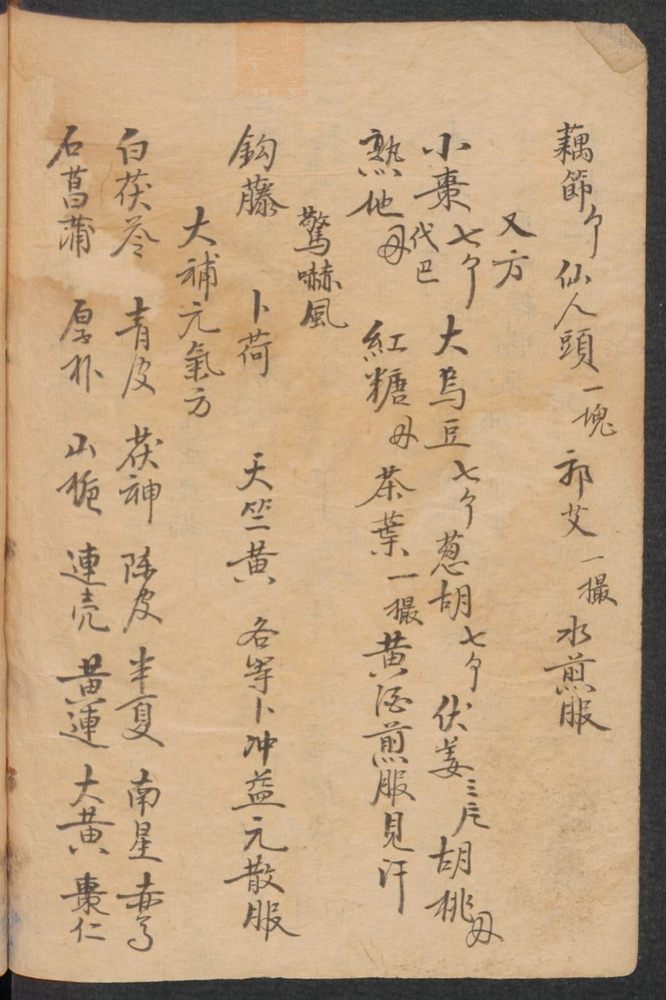 藕節个仙人頭一塊祁艾一撮水煎服
又方
小棗七个代巴大烏豆七个葱胡七个伏姜三片胡桃
熟地紅糖茶葉一撮黄酒煎服見汗
驚嚇風
鈎藤卜荷天竺黄各等卜冲益元散服
大補元氣方
白茯苓青皮茯神陈皮半夏南星赤芍
石菖蒲厚朴山梔連壳黄連大黄棗仁